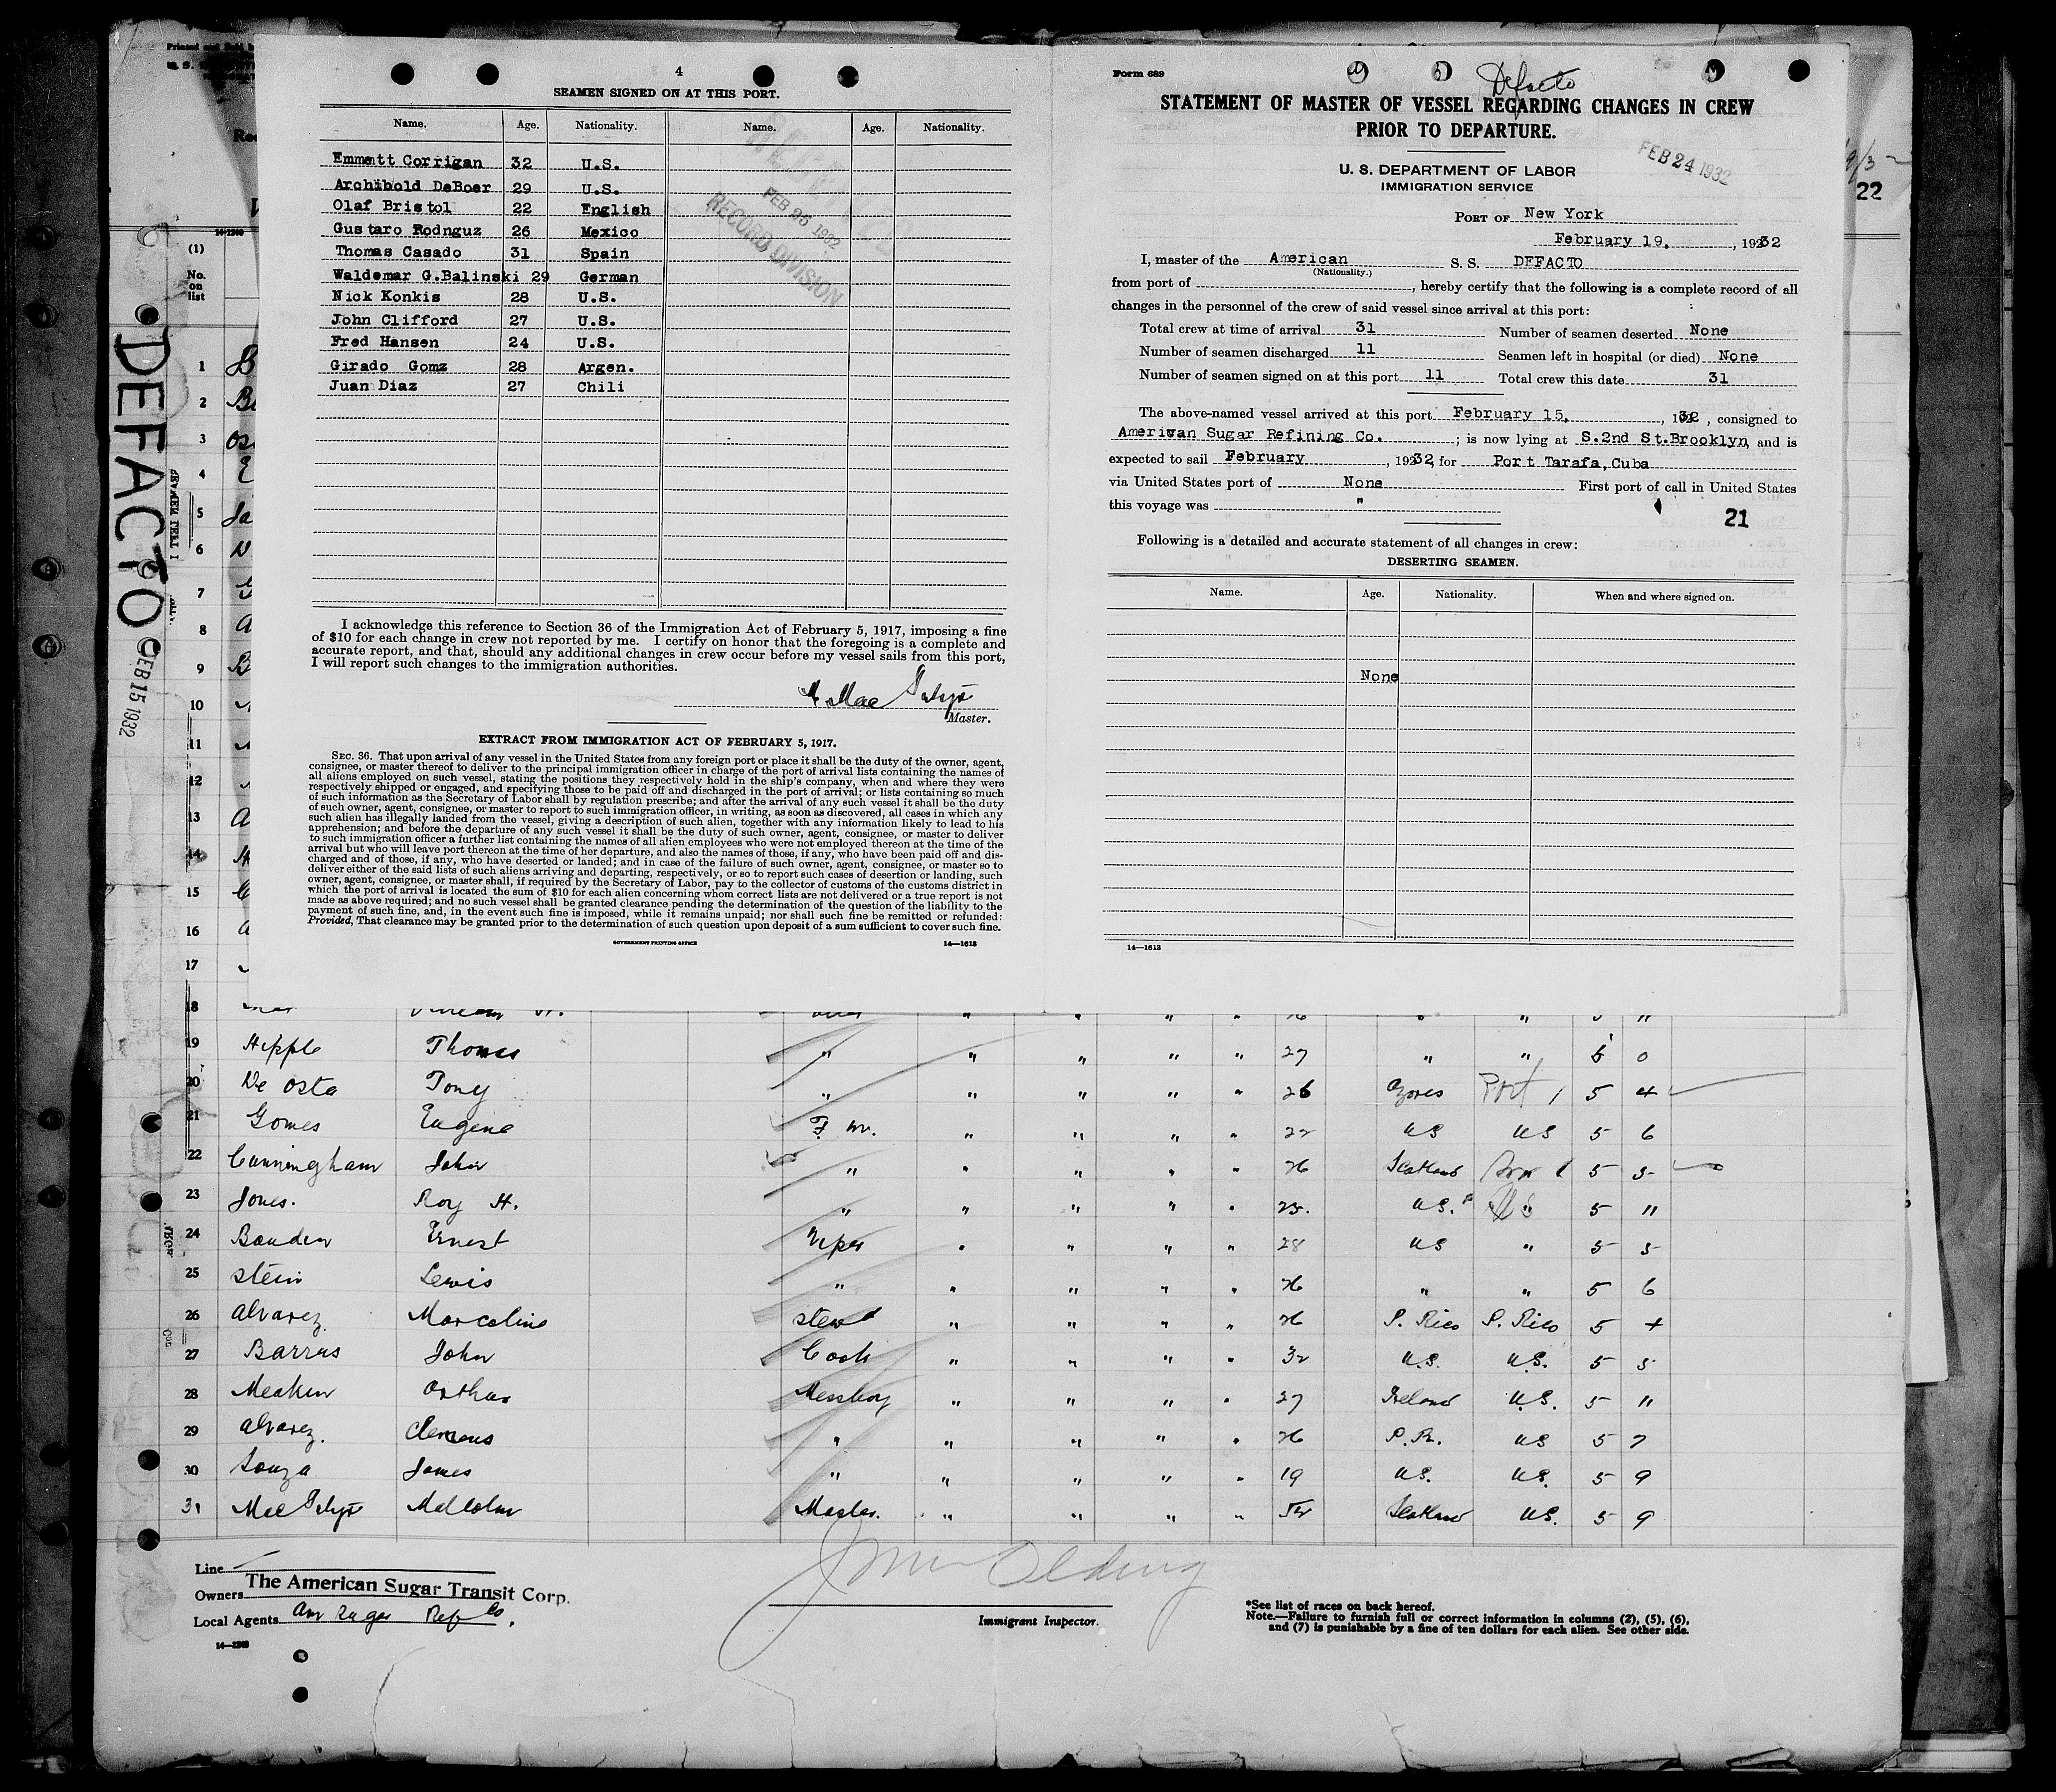 4
SEAMEN SIGNED ON AT THIS PORT.
Name. Age. Nationality. Name. Age. Nationality.
Emmett Corrigan 32 U.S.
Archibold DeBoer 29 U.S.
Olaf Bristol 22 English
Gustaro Rodnguz 26 Mexico
Thomas Casado 31 Spain
Waldemar G.Balinski 29 German
Nick Konkis 28 U.S.
John Clifford 27 U.S.
Fred Hansen 24 U.S.
Girado Gomz 28 Argen.
Juan Diaz 27 Chili
FEB 25 1932
RECORD DIVISION
I acknowledge this reference to Section 36 of the Immigration Act of February 5, 1917, imposing a fine
of $10 for each change in crew not reported by me. I certify on honor that the foregoing is a complete and
accurate report, and that, should any additional changes in crew occur before my vessel sails from this port,
I will report such changes to the immigration authorities.
Master.
EXTRACT FROM IMMIGRATION ACT OF FEBRUARY 5, 1917.
SEC. 36. That upon arrival of any vessel in the United States from any foreign port or place it shall be the duty of the owner, agent,
consignee, or master thereof to deliver to the principal immigration officer in charge of the port of arrival lists containing the names of
all aliens employed on such vessel, stating the positions they respectively hold in the ship's company, when and where they were
respectively shipped or engaged, and specifying those to be paid off and discharged in the port of arrival; or lists containing so much
of such information as the Secretary of Labor shall by regulation prescribe; and after the arrival of any such vessel it shall be the duty
of such owner, agent, consignee, or master to report to such immigration officer, in writing, as soon as discovered, all cases in which any
such alien has illegally landed from the vessel, giving a description of such alien, together with any information likely to lead to his
apprehension; and before the departure of any such vessel it shall be the duty of such owner, agent, consignee, or master to deliver
to such immigration officer a further list containing the names of all alien employees who were not employed thereon at the time of the
arrival but who will leave port thereon at the time of her departure, and also the names of those, if any, who have been paid off and dis-
charged and of those, if any, who have deserted or landed; and in case of the failure of such owner, agent, consignee, or master so to
deliver either of the said lists of such aliens arriving and departing, respectively, or so to report such cases of desertion or landing, such
owner, agent, consignee, or master shall, if required by the Secretary of Labor, pay to the collector of customs of the customs district in
which the port of arrival is located the sum of $10 for each alien concerning whom correct lists are not delivered or a true report is not
made as above required; and no such vessel shall be granted clearance pending the determination of the question of the liability to the
payment of such fine, and, in the event such fine is imposed, while it remains unpaid; nor shall such fine be remitted or refunded:
Provided, That clearance may be granted prior to the determination of such question upon deposit of a sum sufficient to cover such fine.
GOVERNMENT PRINTING OFFICE 14—1613
Form 689
Defacto
STATEMENT OF MASTER OF VESSEL REGARDING CHANGES IN CREW
PRIOR TO DEPARTURE.
FEB 24 1932
U. S. DEPARTMENT OF LABOR
IMMIGRATION SERVICE
PORT OF New York
February 19, , 1932
I, master of the American S. S. DEFACTO
(Nationality.)
from port of , hereby certify that the following is a complete record of all
changes in the personnel of the crew of said vessel since arrival at this port:
Total crew at time of arrival 31 Number of seamen deserted None
Number of seamen discharged 11 Seamen left in hospital (or died) None
Number of seamen signed on at this port 11 Total crew this date 31
The above-named vessel arrived at this port February 15, , 1932, consigned to
Amerivan Sugar Refining Co. ; is now lying at S.2nd St.Brooklyn, and is
expected to sail February , 19232, for Port Tarafa,Cuba
via United States port of None First port of call in United States
this voyage was "
21
Following is a detailed and accurate statement of all changes in crew:
DESERTING SEAMEN.
Name. Age. Nationality. When and where signed on.
None
14—1613
22
DEFACTO
FEB 15 1932
(1)
No.
on
list
1
2
3
4
5
6
7
8
9
10
11
12
13
14
15
16
17
18
19 Hipple Thomas " " " " " 27 " " 5 0
20 De Osta Tony " " " " " 26 Azores Port 5 4
21 Gomes Eugene F. Wr. " " " " 22 US US 5 6
22 Cunningham John " " " " " 26 Scotland 5 5
23 Jones. Roy H. " " " " " 25. US. 5 11
24 Bauden Ernest Wiper " " " " 28 US " 5 5
25 Stein Lewis " " " " " 26 " " 5 6
26 Alvarez Marcolino Stew'd " " " " 26 P. Rico P. Rico 5 4
27 Barras John Cook " " " " 32 U.S. U.S. 5 5
28 Meakin Arthur Messboy " " " " 27 Ireland U.S. 5 11
29 Alvarez. Clemens " " " " " 26 P.R. US 5 7
30 Souza James " " " " " 19 US. US. 5 9
31 Malcolm Master. " " " " 52 Scotland US. 5 9
Line
Owners The American Sugar Transit Corp.
Local Agents Am Sugar Ref Co.
14—1240
Immigrant Inspector.
*See list of races on back hereof.
Note.—Failure to furnish full or correct information in columns (2), (5), (6),
and (7) is punishable by a fine of ten dollars for each alien. See other side.